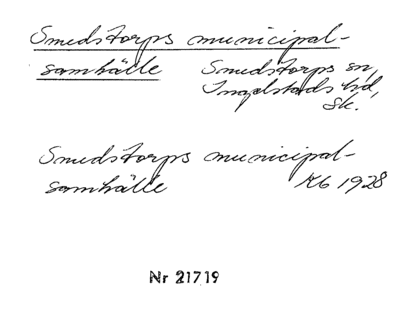 Smedstorps municipal-
samhälle Smedstorps sn,
Ingelstads hd,
Sk.
Smedstorps municipal-
samhälle Kb 1928
Nr 21719